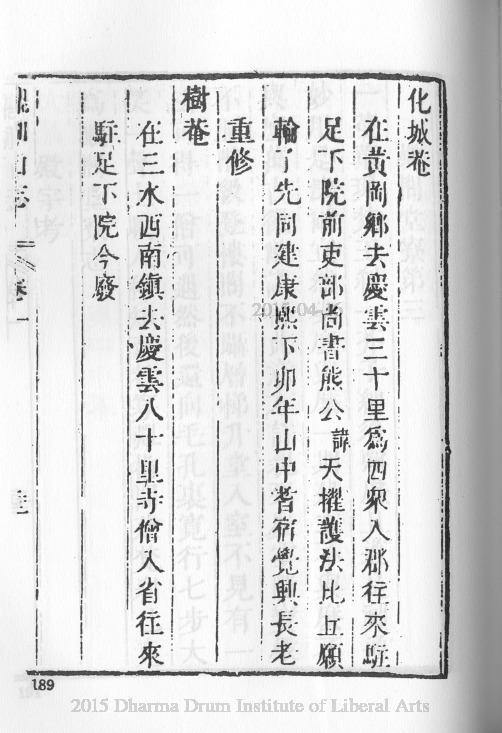 化城菴
在黄岡鄉去慶雲三十里爲四衆入郡往來駐
足下院前吏部尚書熊公諱天擢護法比丘願
輪了先同建康熙丁卯年山中耆宿覺興長老
重修
樹菴
在三水西南鎮去慶雲八十里寺僧入省往來
駐足下院今廢
山志
卷一
189
2015 Dharma Drum Institute of Liberal Arts